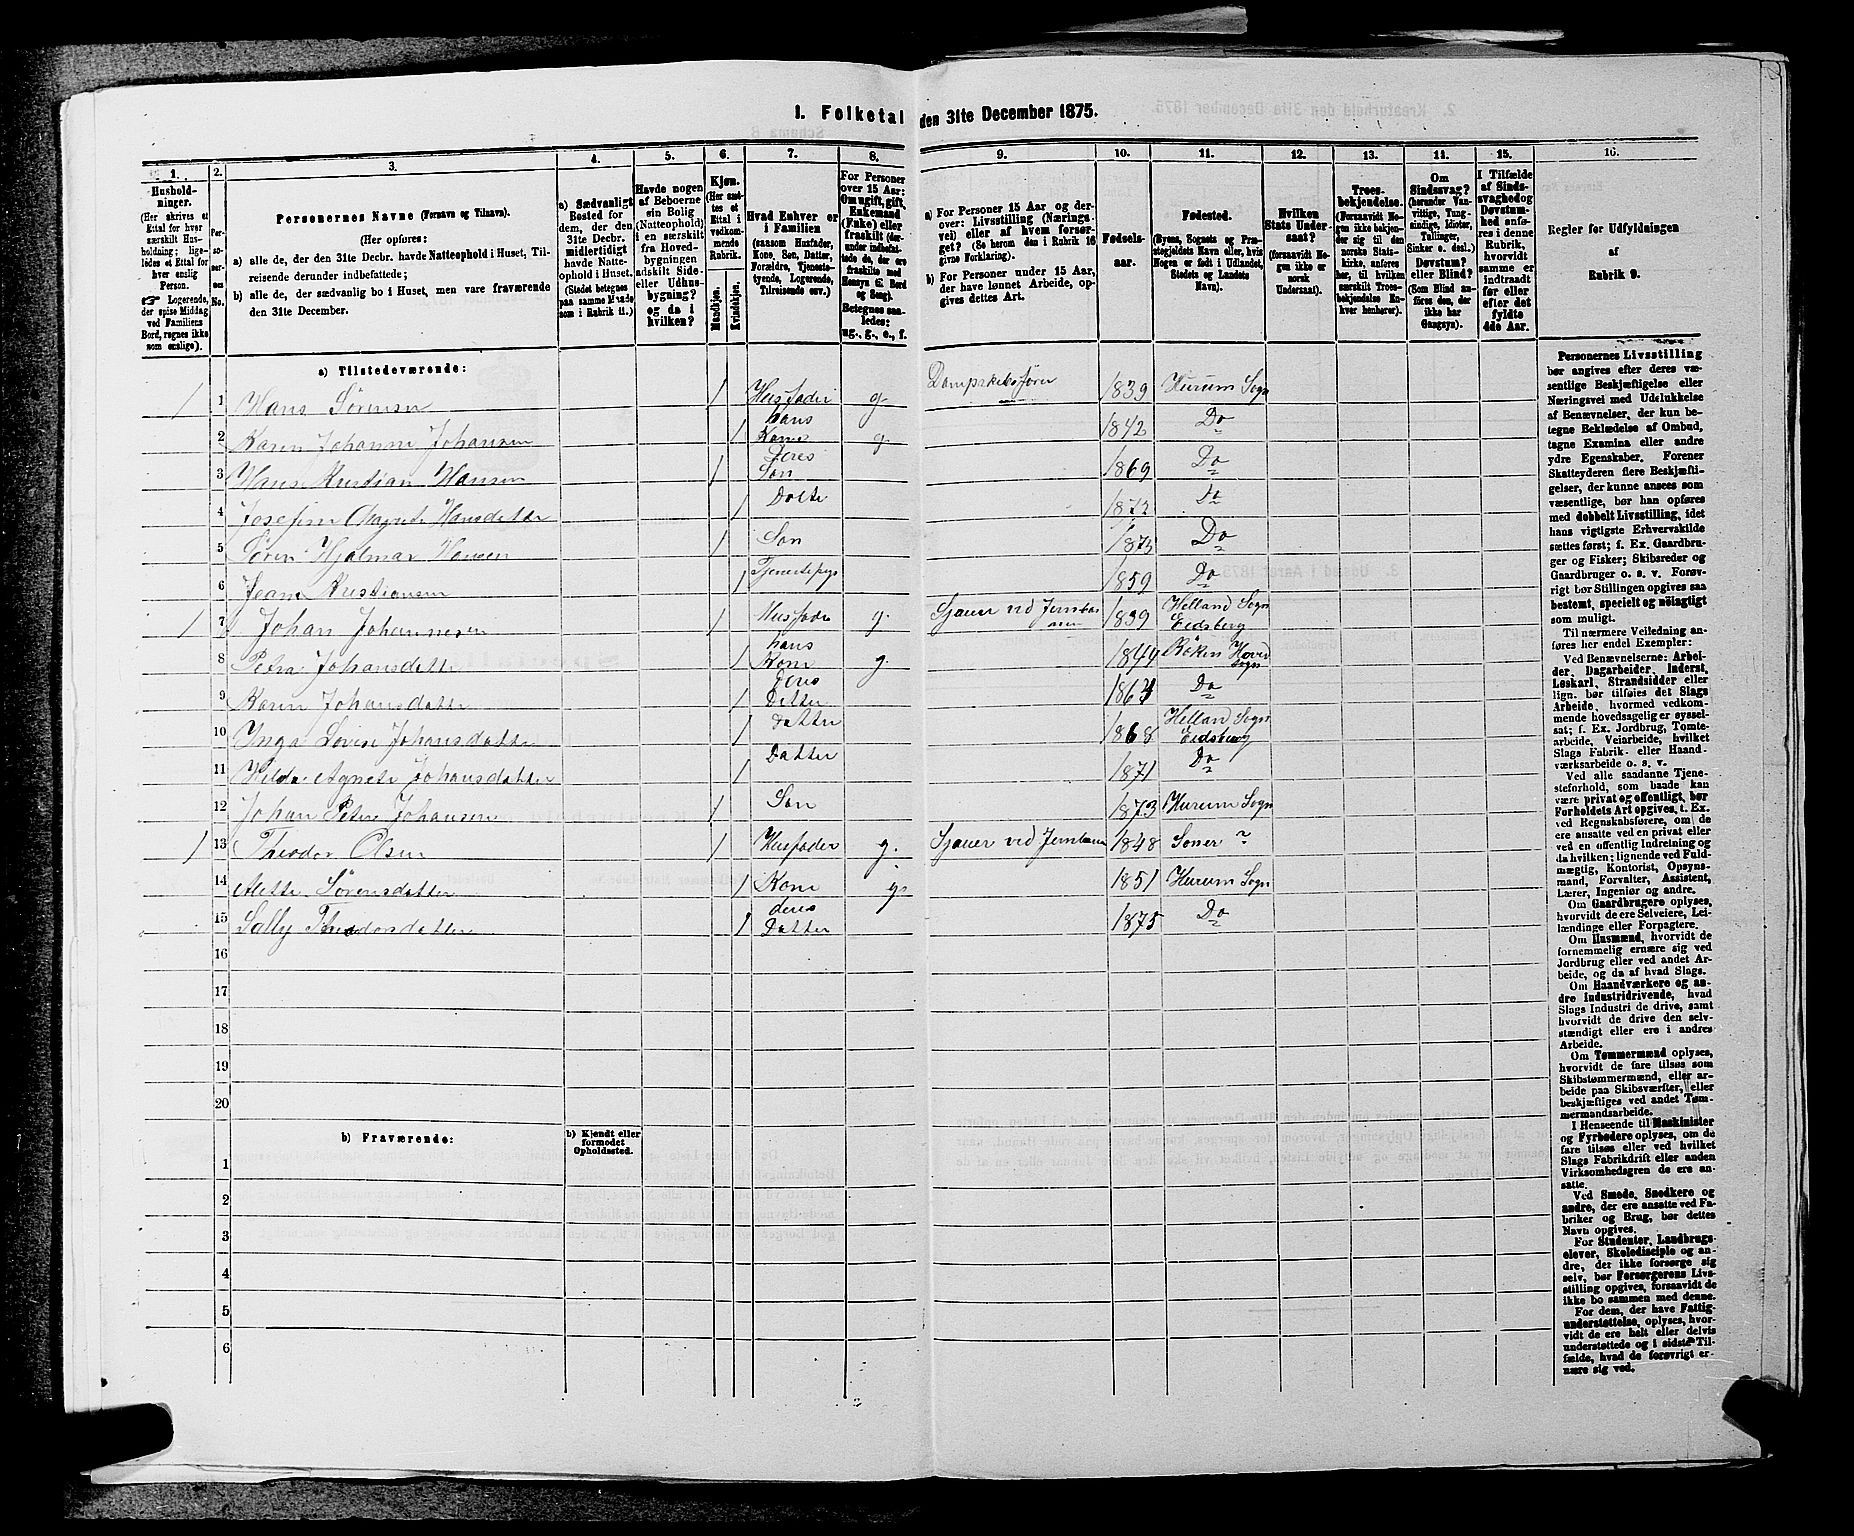 1. Folketal den 31te December 1875.
1. 2. 3. 4. 5. 6. 7. 8. 9. 10. 11. 12. 13. 14. 15. 16.
Husholdninger. (Her skrives et Ettal for hver særskilt Husholdning; ligeledes et Ettal for hver enslig Person. ☞ Logerende, der spise Middag ved Familiens Bord, regnes ikke som enslige).
Personernes No.
Personernes Navne (Fornavn og Tilnavn).
(Her opføres:
a) alle de, der den 31te Decbr. havde Natteophold i Huset, Tilreisende derunder indbefattede;
b) alle de, der sædvanlig bo i Huset, men vare fraværende den 31te December.
a) Sædvanligt Bosted for dem, der den 31te Decbr. midlertidigt havde Natteophold i Huset. (Stedet betegnes paa samme Maade som i Rubrik 11.)
Havde nogen af Beboerne sin Bolig (Natteophold) i en særskilt fra Hovedbygningen adskilt Side- eller Udhusbygning? og da i hvilken?
Kjøn. (Her sættes et Ettal i vedkommende Rubrik.
Mandkjøn. Kvindekjøn.
Hvad Enhver er i Familien (saasom Husfader, Kone, Søn, Datter, Forældre, Tjenestetyende, Logerende, Tilreisende osv.)
For Personer over 15 Aar: Om ugift, gift, Enkemand (Enke) eller fraskilt (derunder indbefattede de, der ere fraskilte med Hensyn til Bord og Seng). Betegnes saaledes: ug., g., e., f.
a) For Personer 15 Aar og derover: Livsstilling (Næringsvei) eller af hvem forsørget? (Se herom den i Rubrik 16 givne Forklaring).
b) For Personer under 15 Aar, der have lønnet Arbeide, opgives dettes Art.
Fødselsaar.
Fødested. (Byens, Sognets og Præstegjeldets Navn eller, hvis Nogen er født i Udlandet, Stedets og Landets Navn).
Hvilken Stats Undersaat? (forsaavidt Nogen ikke er norsk Undersaat).
Troesbekjendelse. (Forsaavidt Nogen ikke bekjender sig til den norske Statskirke, anføres her, til hvilken særskilt Troesbekjendelse Enhver henhører).
Om Sindssvag? (herunder Vanvittige, Tungsindige, Idioter, Tullinger, Sinker o. desl.) Døvstum? eller Blind? (Som Blind anføres den, der ikke har Gangsyn).
I Tilfælde af Sindssvaghed og Døvstumhed anføres i denne Rubrik, hvorvidt samme er indtraadt før eller efter det fyldte 4de Aar.
Regler for Udfyldningen af Rubrik 9.
a) Tilstedeværende:
1 1 Hans Sörensen 1 Husfader g. Dampskibsfører 1839 Hurum Sogn
2 Karen Johanne Johansen 1 hans Kone g. 1842 Do
3 Hans Kristian Hansen 1 deres Søn 1869 Do
4 Josefine Agnete Hansdatter 1 Datter 1872 Do
5 Sören Hjalmar Hansen 1 Søn 1875 Do
6 Kristiansen 1 Tjenestepige 1859 Do
1 7 Johan Johannesen 1 Husfader g. Sjauer ved 1839 Helland Sogn Eidsberg
8 Petra Johansdatter 1 hans Kone g. 1844 Röken Hoved Sogn
9 Karen Johansdatter 1 deres Datter 1864 Do
10 Inga Lovise Johansdatter 1 Datter 1868 Helland Sogn Eidsberg
11 Hilda Agnete Johansdatter 1 Datter 1871 Do
12 Johan Petter Johansen 1 Søn 1873 Hurum Sogn
1 13 Theodor Olsen 1 Husfader g. Sjauer ved 1848 Soner ?
14 Alette Sörensdatter 1 Kone g. 1851 Hurum Sogn
15 Sally Theodorsdatter 1 deres Datter 1875 Do
16
17
18
19
20
b) Fraværende: b) Kjendt eller formodet Opholdssted.
1
2
3
4
5
6
Personernes Livsstilling bør angives efter deres væsentlige Beskjæftigelse eller Næringsvei med Udelukkelse af Benævnelser, der kun betegne Beklædelse af Ombud, tagne Examina eller andre ydre Egenskaber. Forener Skatteyderen flere Beskjæftigelser, der kunne ansees som væsentlige, bør han opføres med dobbelt Livsstilling, idet hans vigtigste Erhvervskilde sættes først; f. Ex. Gaardbruger og Fisker; Skibsreder og Gaardbruger o. s. v. Forøvrigt bør Stillingen opgives saa bestemt, specielt og nøiagtigt som muligt.
Til nærmere Veiledning anføres her endel Exempler:
Ved Benævnelserne: Arbeider, Dagarbeider, Inderst, Løskarl, Strandsidder eller lign. bør tilføies det Slags Arbeide, hvormed vedkommende hovedsagelig er sysselsat; f. Ex. Jordbrug, Tomtearbeide, Veiarbeide, hvilket Slags Fabrik- eller Haandværksarbeide o. s. v.
Ved alle saadanne Tjenesteforhold, som baade kan være privat og offentlig, bør Forholdets Art opgives, t. Ex. ved Regnskabsførere, om de ere ansatte ved en privat eller ved en offentlig Indretning og da hvilken; lignende ved Fuldmægtig, Kontorist, Opsynsmand, Forvalter, Assistent, Lærer, Ingeniør og andre.
Om Gaardbrugere oplyses, hvorvidt de ere Selveiere, Leilændinge eller Forpagtere.
Om Husmænd, hvorvidt de fornemmelig ernære sig ved Jordbrug eller ved andet Arbeide, og da af hvad Slags.
Om Haandværkere og andre Industridrivende, hvad Slags Industri de drive, samt hvorvidt de drive den selvstændigt eller ere i andres Arbeide.
Om Tømmermænd oplyses, hvorvidt de fare tilsøs som Skibstømmermænd, eller arbeide paa Skibsværfter, eller beskjæftiges ved andet Tømmermandsarbeide.
I Henseende til Maskinister og Fyrbødere oplyses, om de fare tilsøs eller ved hvilket Slags Fabrikdrift eller anden Virksomhedsgren de ere ansatte.
Ved Smede, Snedkere og andre, der ere ansatte ved Fabriker og Brug, bør dettes Navn opgives.
For Studenter, Landbrugselever, Skoledisciple og andre, der ikke forsørge sig selv, bør Forsørgerens Livsstilling opgives, forsaavidt de ikke bo sammen med denne.
For dem, der have Fattigunderstøttelse, oplyses, hvorvidt de ere helt eller delvis understøttede og i sidste Tilfælde, hvad de forøvrigt ernære sig ved.